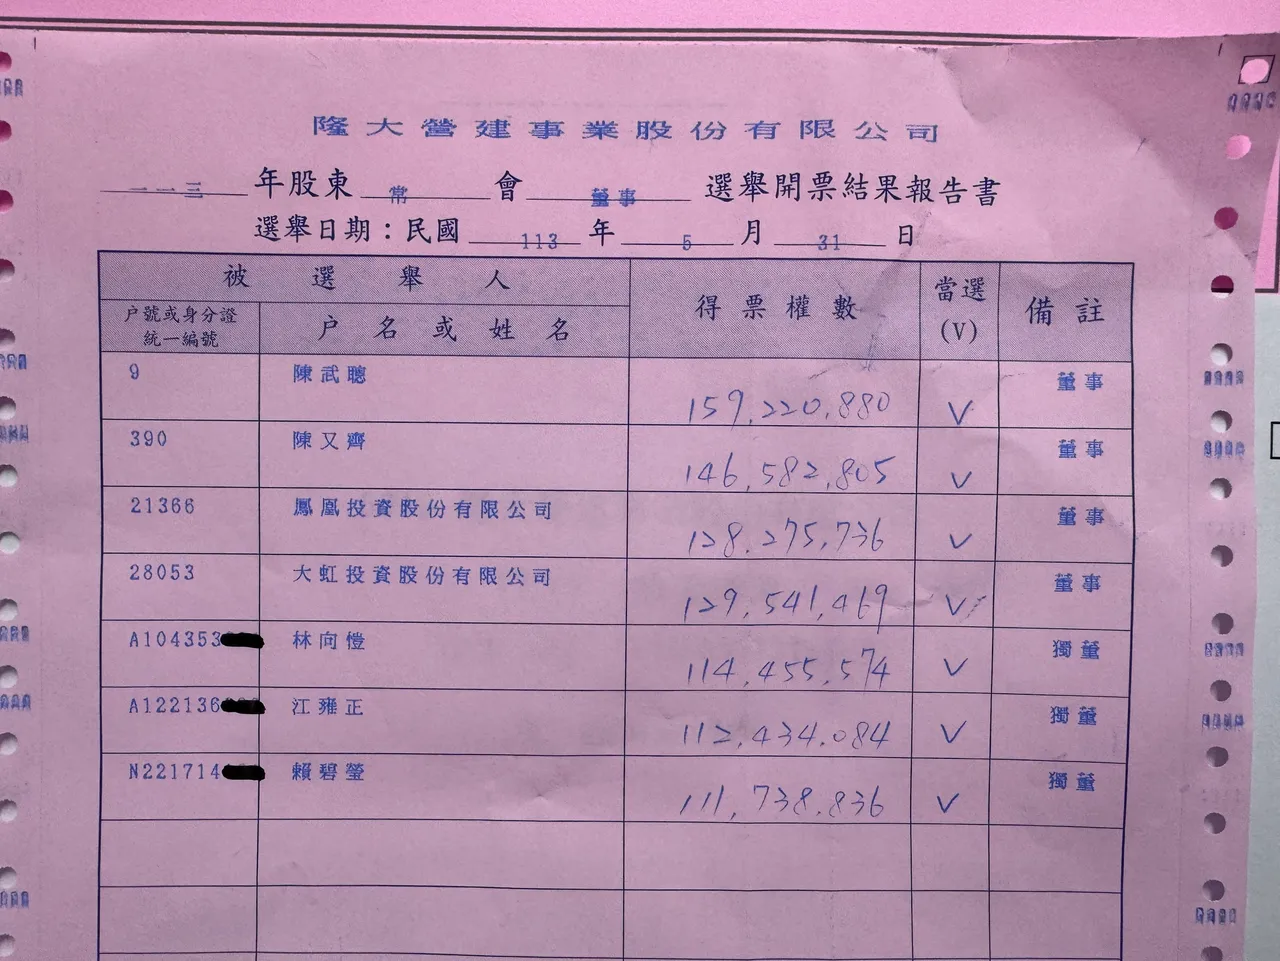 隆大營建事業股份有限公司
一一三 年股東 常 會 董事 選舉開票結果報告書
選舉日期：民國 113 年 5 月 31 日
被選舉人 得票權數 當選(V) 備註
户號或身分證統一編號 户名或姓名
9 陳武聰 159,220,880 V 董事
390 陳又齊 146,582,805 V 董事
21366 鳳凰投資股份有限公司 128,275,736 V 董事
28053 大虹投資股份有限公司 129,541,469 V 董事
A104353 林向愷 114,455,574 V 獨董
A122136 江雍正 112,434,084 V 獨董
N221714 賴碧瑩 111,738,836 V 獨董